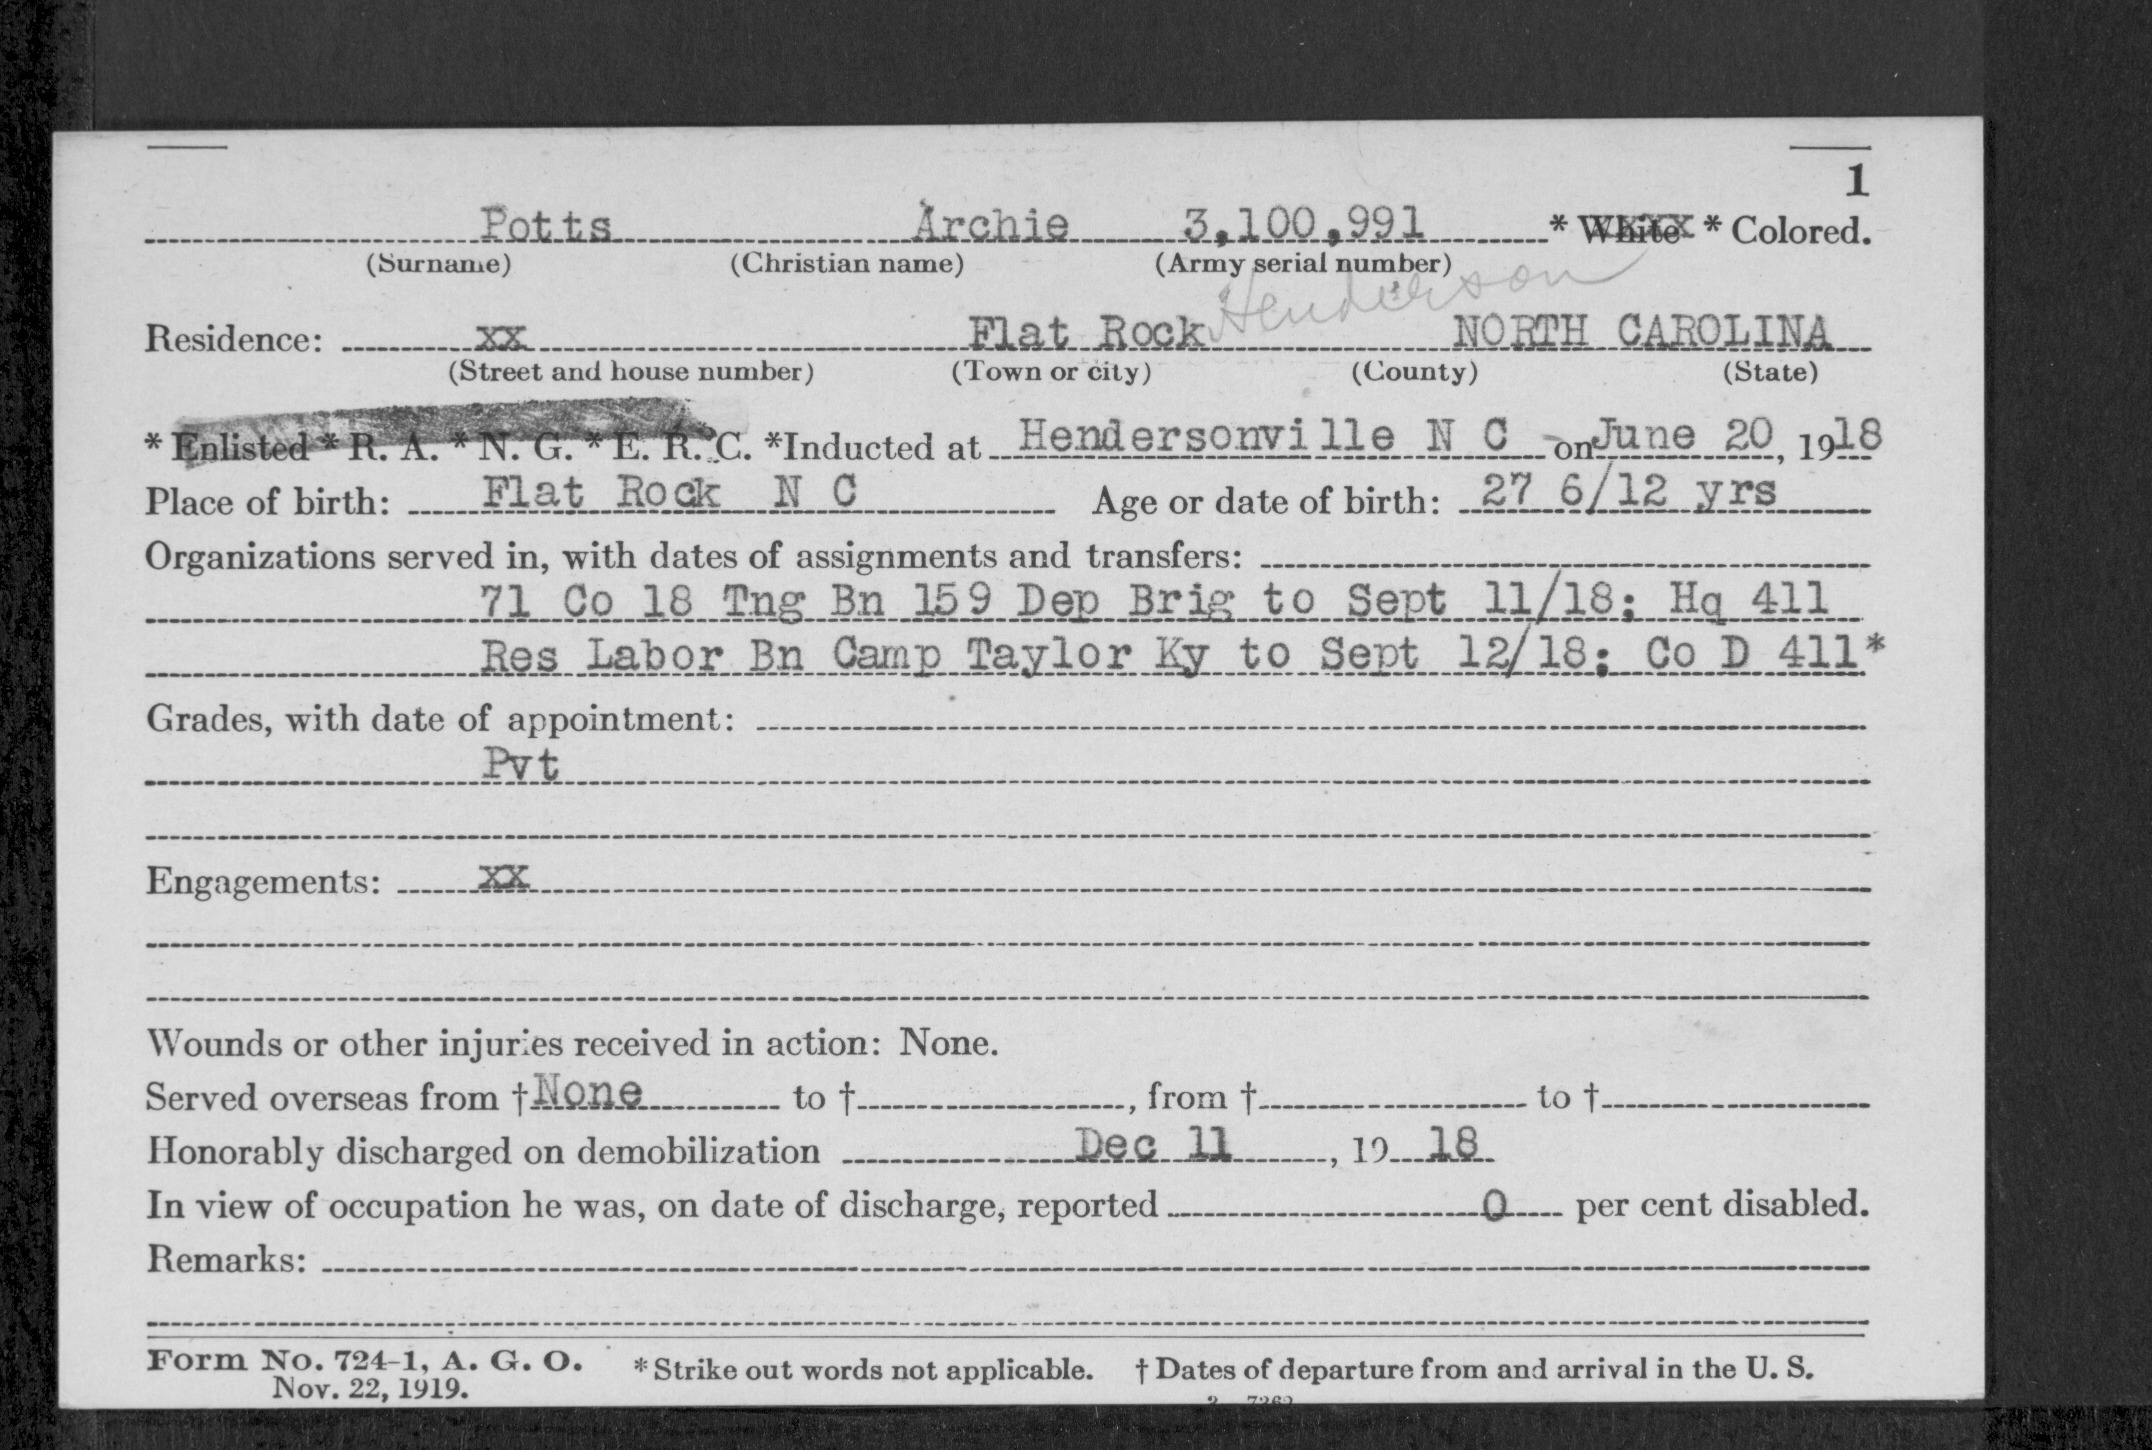 1
Potts Archie 3,100,991 * White xxx * Colored.
(Surname) (Christian name) (Army serial number)
Henderson
Residence: xx Flat Rock NORTH CAROLINA
(Street and house number) (Town or city) (County) (State)
* Enlisted * R. A. * N. G. * E. R. C. *Inducted at Hendersonville N C - on June 20, 1918
Place of birth: Flat Rock N C Age or date of birth: 27 6/12 yrs
Organizations served in, with dates of assignments and transfers:
71 Co 18 Tng Bn 159 Dep Brig to Sept 11/18; Hq 411
Res Labor Bn Camp Taylor Ky to Sept 12/18; Co D 411*
Grades, with date of appointment:
Pvt
Engagements: xx
Wounds or other injuries received in action: None.
Served overseas from †None to †, from † to †
Honorably discharged on demobilization Dec 11, 19 18
In view of occupation he was, on date of discharge, reported 0 per cent disabled.
Remarks:
Form No. 724-1, A. G. O. * Strike out words not applicable. † Dates of departure from and arrival in the U. S.
Nov. 22, 1919.